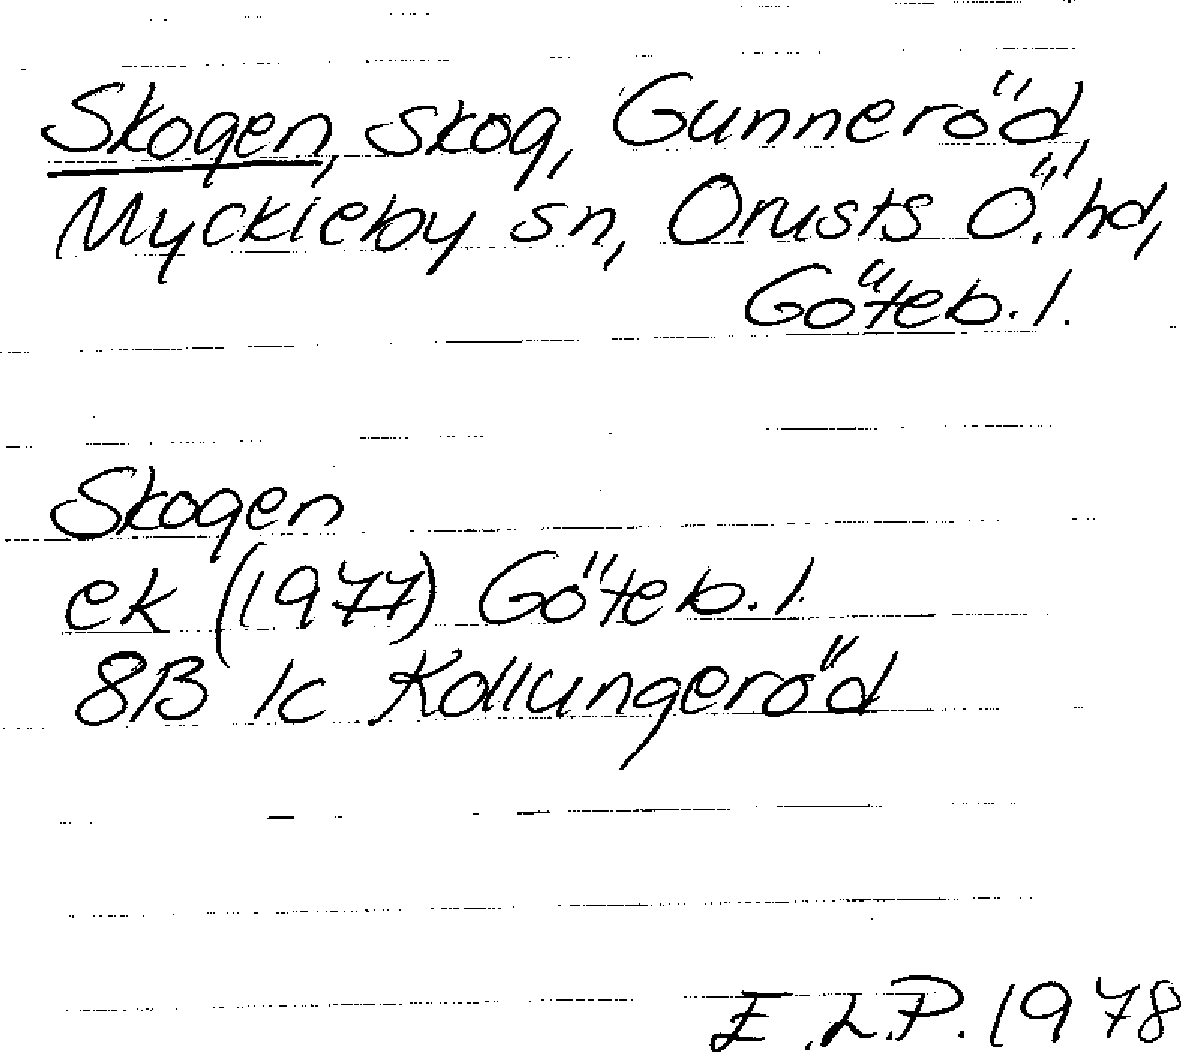 Skogen, skog, Gunneröd,
Myckleby sn, Orusts Ö. hd,
Göteb. l.
Skogen
ek (1977) Göteb. l.
8B 1c Kollungeröd
E.L.P. 1978